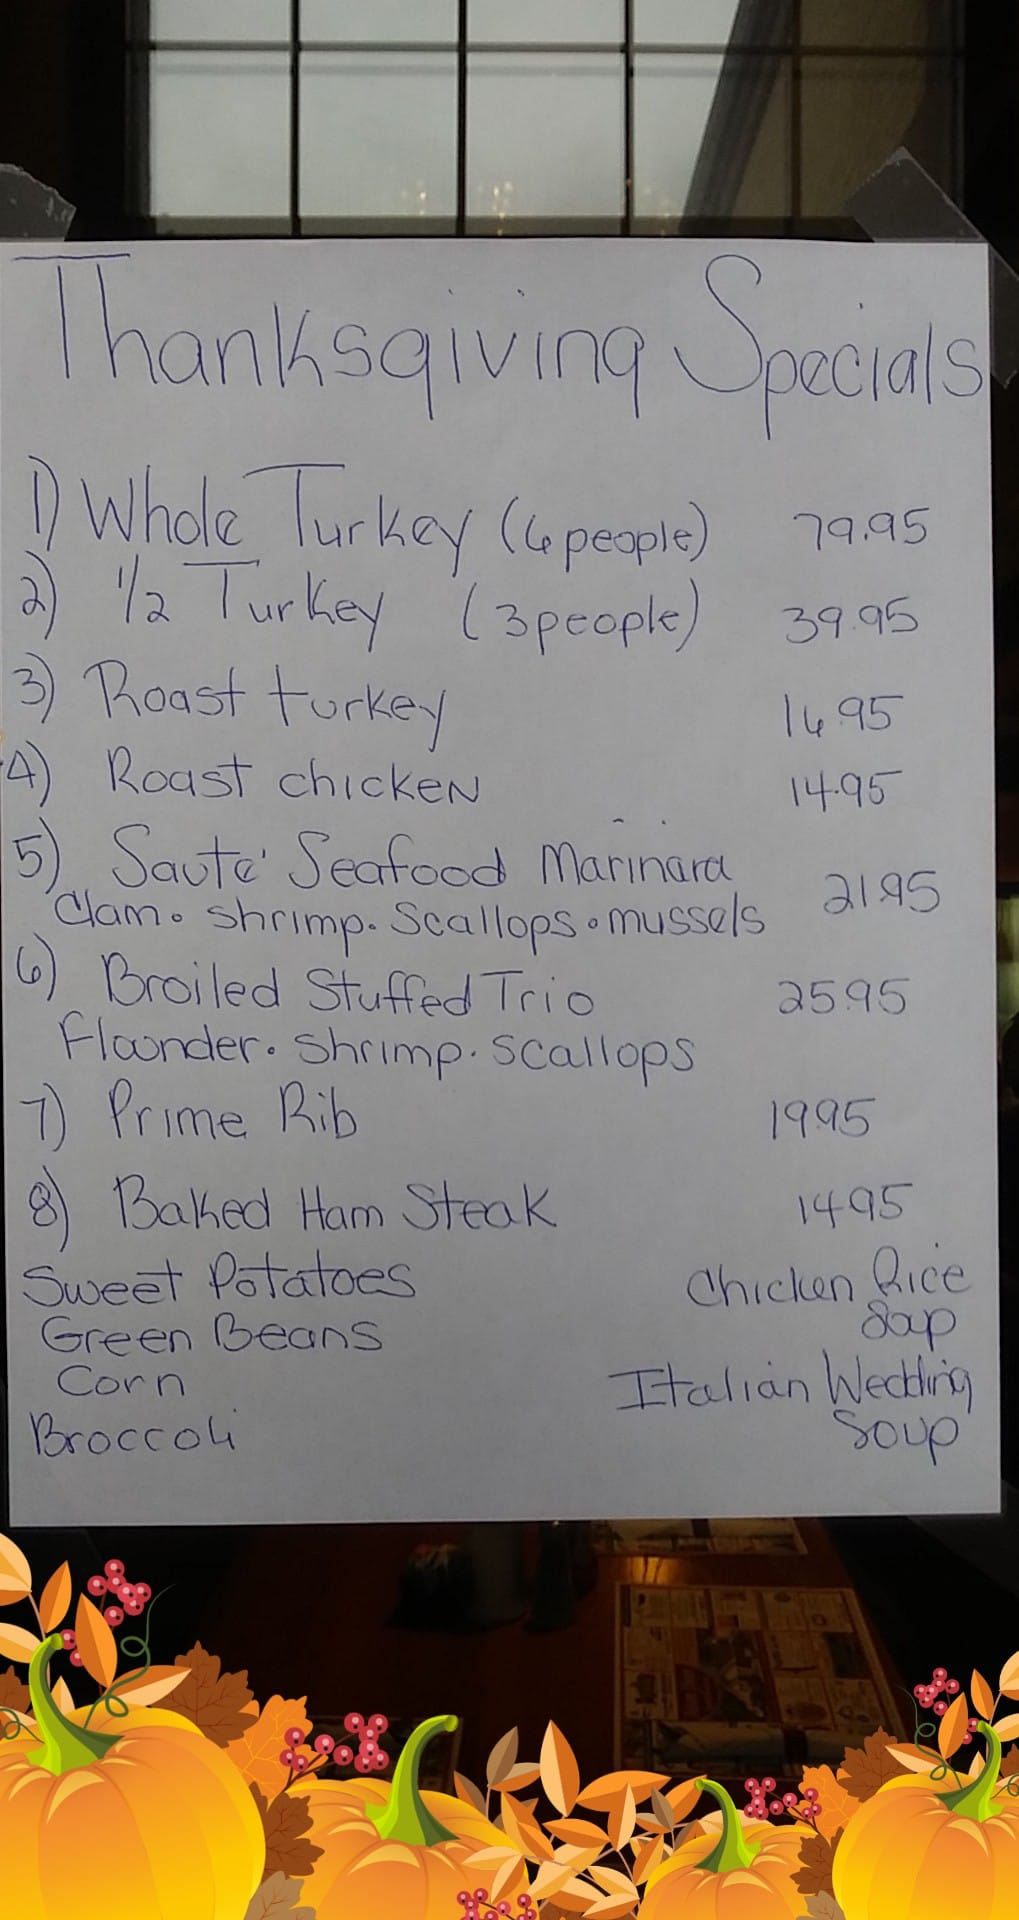 Thanksgiving Specials
1) Whole Turkey (6 people) 79.95
2) 1/2 Turkey (3 people) 39.95
3) Roast turkey 16.95
4) Roast chicken 14.95
5) Saute' Seafood Marinara 21.95
Clam • shrimp • Scallops • mussels
6) Broiled Stuffed Trio 25.95
Flounder • Shrimp • scallops
7) Prime Rib 19.95
8) Baked Ham Steak 1495
Sweet Potatoes
Green Beans
Corn
Broccoli
Chicken Rice
Soup
Italian Wedding
Soup